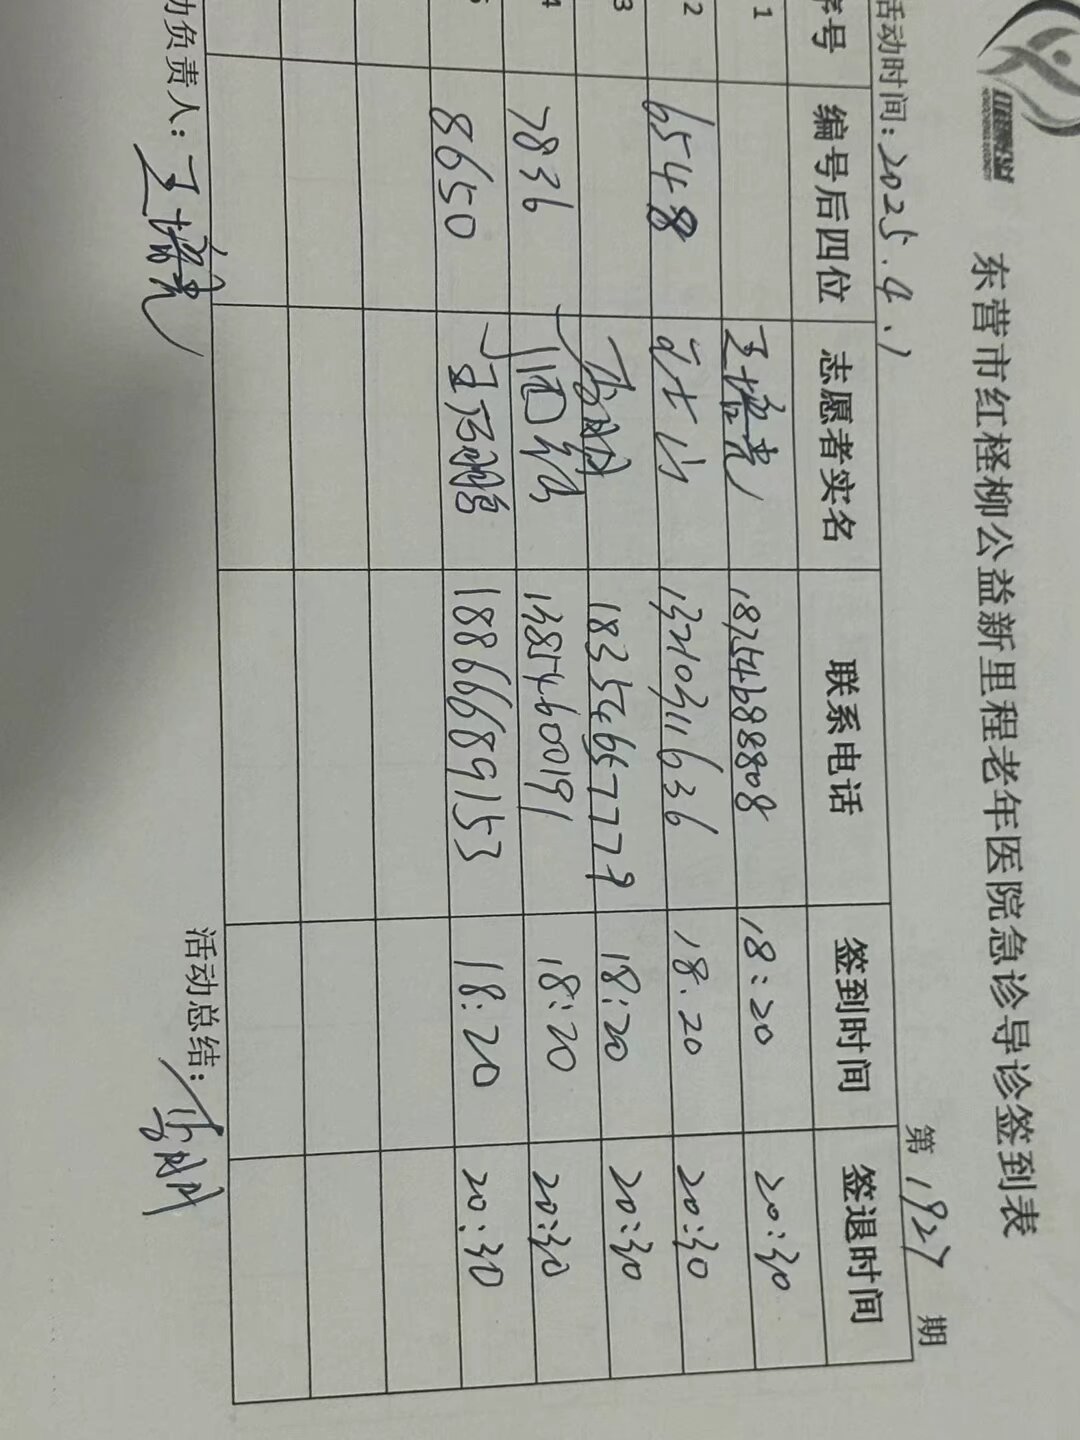 东营市红柽柳公益新里程老年医院急诊导诊签到表
活动时间：2025.4.1 第1927期
序号 编号后四位 志愿者实名 联系电话 签到时间 签退时间
1 王培亮 18754688808 18:20 20:30
2 6548 13210311636 18.20 20:30
3 18354657779 18:20 20:30
4 7836 13854600191 18:20 20:30
5 8650 18866689153 18:20 20:30
动负责人：王培亮 活动总结：